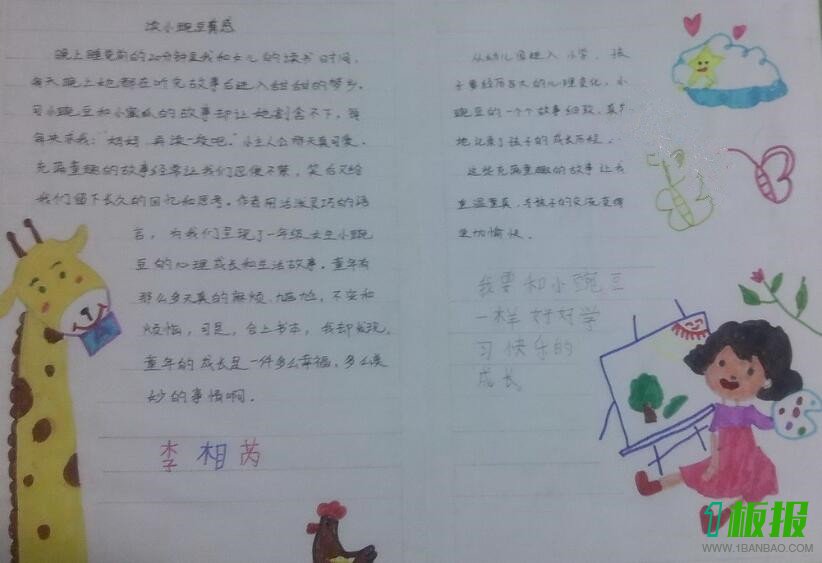 读小豌豆有感
晚上睡觉前的20分钟是我和女儿的读书时间,
每天晚上她都在听完故事后进入甜甜的梦乡。
可小豌豆和小蜜瓜的故事却让她割舍不下,每
每央求我:“妈妈,再读一段吧。”小主人公那天真可爱、
充满童趣的故事经常让我们忍俊不禁,笑后又给
我们留下长久的回忆和思考。作者用活泼灵巧的语
言,为我们呈现了一年级女生小豌
豆的心理成长和生活故事。童年有
那么多天真的麻烦、尴尬、不安和
烦恼,可是,合上书本,我却发现,
童年的成长是一件多么幸福,多么美
妙的事情啊。
李相芮
从幼儿园进入小学,孩
子要经历巨大的心理变化,小
豌豆的一个个故事细致、真实
地记录了孩子的成长历程。
这些充满童趣的故事让我
重温童真,与孩子的交流变得
更加愉快。
我要和小豌豆
一样好好学
习快乐的
成长。
1板报
WWW.1BANBAO.COM